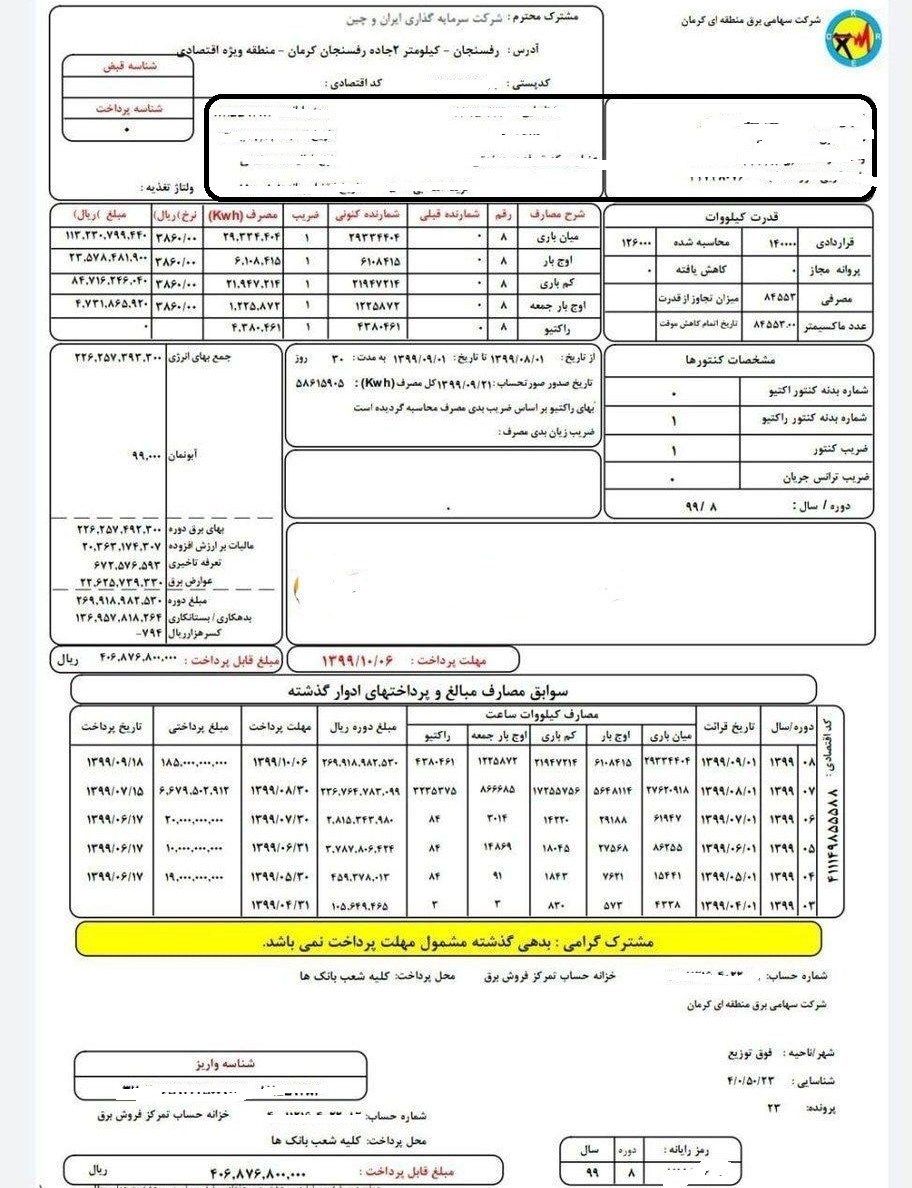 شرکت سهامی برق منطقه ای کرمان
مشترک محترم : شرکت سرمایه گذاری ایران و چین
آدرس : رفسنجان - کیلومتر ۲جاده رفسنجان کرمان - منطقه ویژه اقتصادی
کدپستی : کد اقتصادی :
شناسه قبض
شناسه پرداخت
۰
ولتاژ تغذیه :
قدرت کیلووات
قراردادی ۱۴۰۰۰۰ محاسبه شده ۱۲۶۰۰۰
پروانه مجاز ۰ کاهش یافته ۰
مصرفی ۸۴۵۵۳ میزان تجاوز از قدرت
عدد ماکسیمتر ۸۴۵۵۳.۰۰ تاریخ اتمام کاهش موقت
شرح مصارف رقم شمارنده قبلی شمارنده کنونی ضریب مصرف (Kwh) نرخ)ریال( مبلغ )ریال(
میان باری ۸ ۰ ۲۹۳۳۴۴۰۴ ۱ ۲۹,۳۳۴,۴۰۴ ۳۸۶۰/۰۰ ۱۱۳,۲۳۰,۷۹۹,۴۴۰
اوج بار ۸ ۰ ۶۱۰۸۴۱۵ ۱ ۶,۱۰۸,۴۱۵ ۳۸۶۰/۰۰ ۲۳,۵۷۸,۴۸۱,۹۰۰
کم باری ۸ ۰ ۲۱۹۴۷۲۱۴ ۱ ۲۱,۹۴۷,۲۱۴ ۳۸۶۰/۰۰ ۸۴,۷۱۶,۲۴۶,۰۴۰
اوج بار جمعه ۸ ۰ ۱۲۲۵۸۷۲ ۱ ۱,۲۲۵,۸۷۲ ۳۸۶۰/۰۰ ۴,۷۳۱,۸۶۵,۹۲۰
راکتیو ۸ ۰ ۴۳۸۰۴۶۱ ۱ ۴,۳۸۰,۴۶۱ ۰
مشخصات کنتورها
شماره بدنه کنتور اکتیو ۰
شماره بدنه کنتور راکتیو ۱
ضریب کنتور ۱
ضریب ترانس جریان ۰
دوره / سال : ۸ /۹۹
از تاریخ : ۱۳۹۹/۰۸/۰۱ تا تاریخ : ۱۳۹۹/۰۹/۰۱ به مدت : ۳۰ روز
تاریخ صدور صورتحساب :۱۳۹۹/۰۹/۲۱ کل مصرف (Kwh) : ۵۸۶۱۵۹۰۵
بهای راکتیو بر اساس ضریب بدی مصرف محاسبه گردیده است
ضریب زیان بدی مصرف :
۰
جمع بهای انرژی ۲۲۶,۲۵۷,۳۹۳,۳۰۰
آبونمان ۹۹,۰۰۰
بهای برق دوره ۲۲۶,۲۵۷,۴۹۲,۳۰۰
مالیات بر ارزش افزوده ۲۰,۳۶۳,۱۷۴,۳۰۷
تعرفه تاخیری ۶۷۲,۵۷۶,۵۹۳
عوارض برق ۲۲,۶۲۵,۷۳۹,۳۳۰
مبلغ دوره ۲۶۹,۹۱۸,۹۸۲,۵۳۰
بدهکاری / بستانکاری ۱۳۶,۹۵۷,۸۱۸,۲۶۴
کسرهزارریال ۷۹۴-
مهلت پرداخت : ۱۳۹۹/۱۰/۰۶
مبلغ قابل پرداخت : ۴۰۶,۸۷۶,۸۰۰,۰۰۰ ریال
سوابق مصارف مبالغ و پرداختهای ادوار گذشته
کد اقتصادی : ۴۱۱۱۴۹۸۵۵۵۸۸
دوره/سال تاریخ قرائت مصارف کیلووات ساعت مبلغ دوره ریال مهلت پرداخت مبلغ پرداختی تاریخ پرداخت
میان باری اوج بار کم باری اوج بار جمعه راکتیو
۰۸ ۱۳۹۹ ۱۳۹۹/۰۹/۰۱ ۲۹۳۳۴۴۰۴ ۶۱۰۸۴۱۵ ۲۱۹۴۷۲۱۴ ۱۲۲۵۸۷۲ ۴۳۸۰۴۶۱ ۲۶۹,۹۱۸,۹۸۲,۵۳۰ ۱۳۹۹/۱۰/۰۶ ۱۸۵,۰۰۰,۰۰۰,۰۰۰ ۱۳۹۹/۰۹/۱۸
۰۷ ۱۳۹۹ ۱۳۹۹/۰۸/۰۱ ۲۷۶۲۰۹۱۸ ۵۶۴۸۱۱۴ ۱۷۲۵۵۷۵۶ ۸۶۶۶۸۵ ۲۲۳۵۳۷۵ ۲۳۶,۷۶۴,۷۸۳,۰۹۹ ۱۳۹۹/۰۸/۳۰ ۶,۶۷۹,۵۰۲,۹۱۲ ۱۳۹۹/۰۷/۱۵
۰۶ ۱۳۹۹ ۱۳۹۹/۰۷/۰۱ ۶۱۹۴۷ ۲۹۱۸۸ ۱۴۲۲۰ ۳۰۱۴ ۸۴ ۲,۸۱۵,۳۴۳,۹۸۰ ۱۳۹۹/۰۷/۳۰ ۲۰,۰۰۰,۰۰۰,۰۰۰ ۱۳۹۹/۰۶/۱۷
۰۵ ۱۳۹۹ ۱۳۹۹/۰۶/۰۱ ۸۶۲۵۵ ۲۷۵۶۸ ۱۸۰۴۵ ۱۴۸۶۹ ۸۴ ۳,۷۸۷,۸۰۶,۴۲۴ ۱۳۹۹/۰۶/۳۱ ۱۰,۰۰۰,۰۰۰,۰۰۰ ۱۳۹۹/۰۶/۱۷
۰۴ ۱۳۹۹ ۱۳۹۹/۰۵/۰۱ ۱۵۴۴۱ ۷۶۲۱ ۱۸۴۳ ۹۱ ۸۴ ۴۵۹,۳۷۸,۰۱۳ ۱۳۹۹/۰۵/۳۰ ۱۹,۰۰۰,۰۰۰,۰۰۰ ۱۳۹۹/۰۶/۱۷
۰۳ ۱۳۹۹ ۱۳۹۹/۰۴/۰۱ ۴۳۳۸ ۵۷۳ ۸۳۰ ۳ ۳ ۱۰۵,۶۴۹,۴۶۵ ۱۳۹۹/۰۴/۳۱
مشترک گرامی : بدهی گذشته مشمول مهلت پرداخت نمی باشد.
شماره حساب: خزانه حساب تمرکز فروش برق محل پرداخت: کلیه شعب بانک ها
شرکت سهامی برق منطقه ای کرمان
شهر/ناحیه : فوق توزیع
شناسایی : ۴/۰/۵۰/۲۳
پرونده: ۲۳
شناسه واریز
شماره حساب: خزانه حساب تمرکز فروش برق
محل پرداخت: کلیه شعب بانک ها
رمز رایانه : دوره سال
۸ ۹۹
مبلغ قابل پرداخت : ۴۰۶,۸۷۶,۸۰۰,۰۰۰ ریال